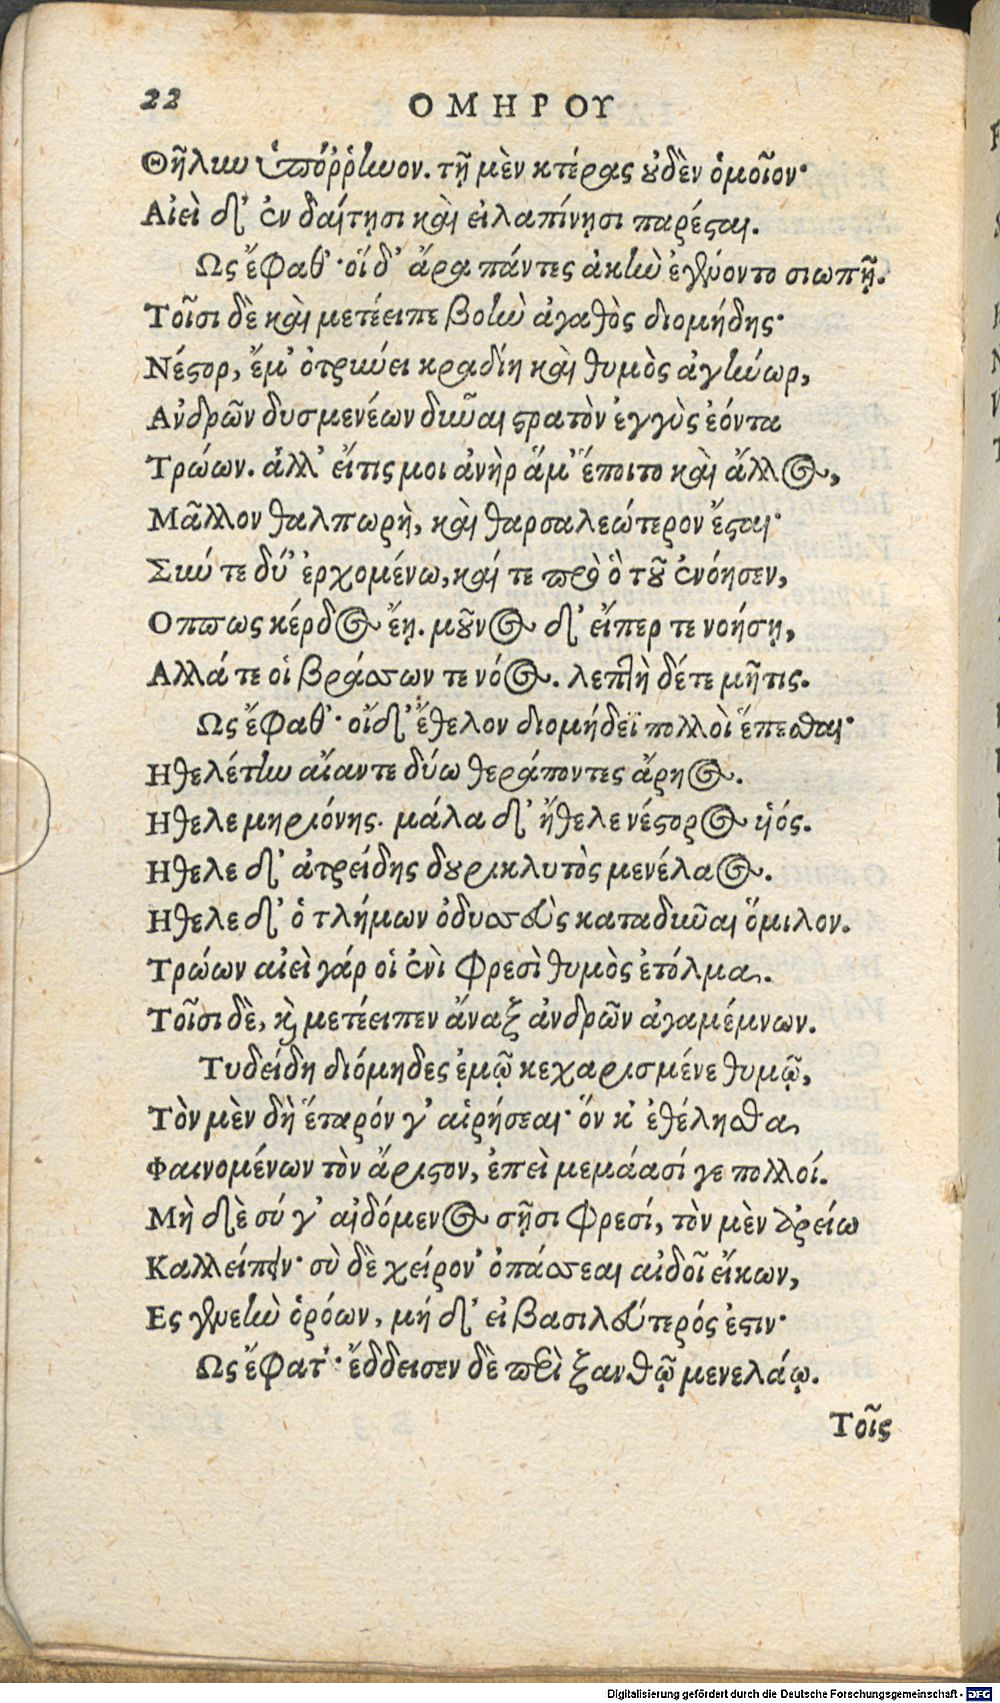 22 ΟΜΗΡΟΥ
Θῆλιω ὑπόῤῥίωον. τῇ μὲν κτέρας οὐδὲν ὁμοῖον·
Αἰεὶ δ' ἐν δαίτῃσι καὶ εἰλαπίνῃσι παρέςαι.
Ως ἔφαθ'· οἱ δ' ἄρα πάντες ἀκὴν ἐγένοντο σιωπῇ.
Τοῖσι δὲ καὶ μετέειπε βοὴν ἀγαθὸς διομήδης·
Νέςορ, ἔμ' ὀτρύνει κραδίη καὶ θυμὸς ἀγήνωρ,
Ανδρῶν δυσμενέων δῦναι ςρατὸν ἐγγὺς ἐόντα
Τρώων. ἀλλ' εἴτις μοι ἀνὴρ ἅμ' ἕποιτο καὶ ἄλλος,
Μᾶλλον θαλπωρὴ, καὶ θαρσαλεώτερον ἔςαι·
Σύν τε δύ' ἐρχομένω, καί τε πρὸ ὃ τοῦ ἐνόησεν,
Οππως κέρδος ἔῃ. μοῦνος δ' εἴπερ τε νοήσῃ,
Αλλά τε οἱ βράσσων τε νόος. λεπτὴ δέτε μῆτις.
Ως ἔφαθ'· οἵ δ' ἔθελον διομήδεϊ πολλοὶ ἕπεσθαι·
Ηθελέτην αἴαντε δύω θεράποντες ἄρηος.
Ηθελε μηριόνης. μάλα δ' ἤθελε νέςορος υἱός.
Ηθελε δ' ἀτρείδης δουρικλυτὸς μενέλαος.
Ηθελε δ' ὁ τλήμων ὀδυσσεὺς καταδῦναι ὅμιλον.
Τρώων αἰεὶ γάρ οἱ ἐνὶ φρεσὶ θυμὸς ἐτόλμα.
Τοῖσι δὲ, καὶ μετέειπεν ἄναξ ἀνδρῶν ἀγαμέμνων.
Τυδείδη διόμηδες ἐμῷ κεχαρισμένε θυμῷ,
Τὸν μὲν δὴ ἕταρόν γ' αἱρήσεαι· ὅν κ' ἐθέλησθα
Φαινομένων τὸν ἄριςον, ἐπεὶ μεμάασί γε πολλοί.
Μὴ δὲ σύ γ' αἰδόμενος σῇσι φρεσί, τὸν μὲν ἀρείω
Καλλείπειν· σὺ δὲ χείρον' ὀπάσσεαι αἰδοῖ εἴκων,
Ες γενεὴν ὁρόων, μή δ' εἰ βασιλεύτερός ἐςιν·
Ως ἔφατ'· ἔδδεισεν δὲ περὶ ξανθῷ μενελάῳ.
Τοῖς
Digitalisierung gefördert durch die Deutsche Forschungsgemeinschaft - DFG